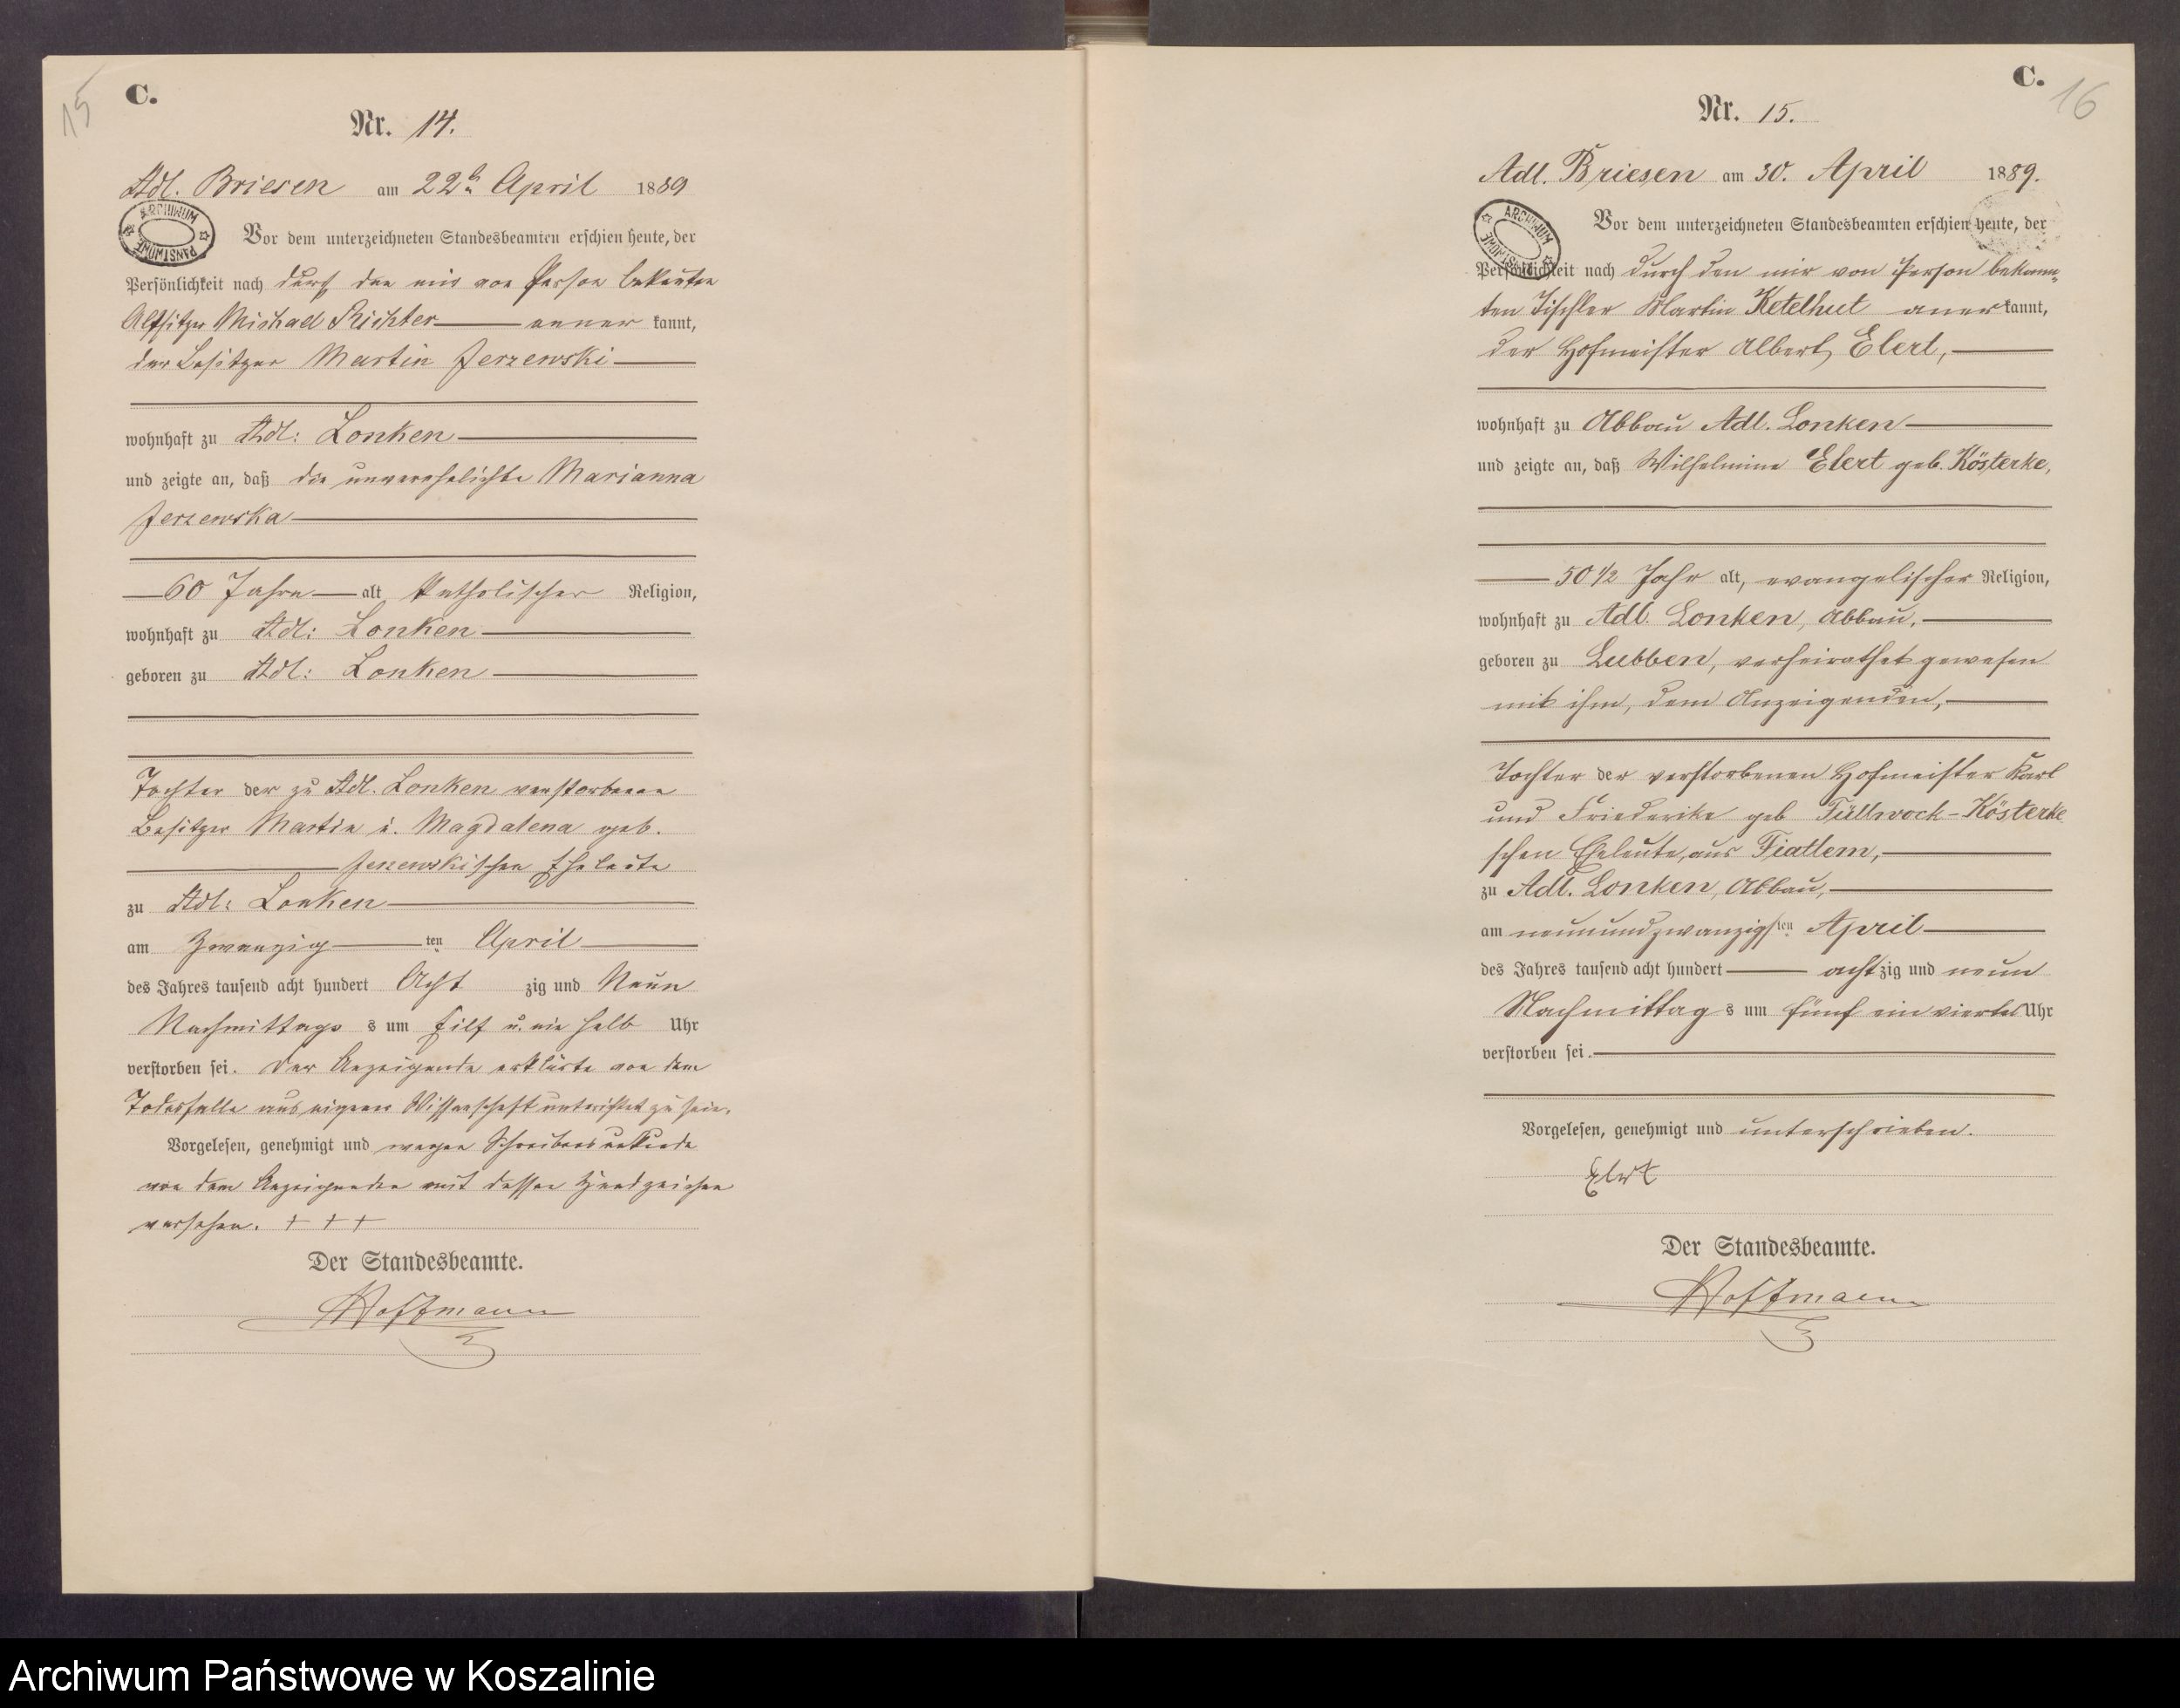 15
C.
Nr. 14.
Adl. Briesen am 22t April 1889
ARCHIWUM PAŃSTWOWE
Vor dem unterzeichneten Standesbeamten erschien heute, der
Persönlichkeit nach durch den mir von Person bekannten
Altsitzer Michael Richter aner kannt,
der Besitzer Martin Jerzewski
wohnhaft zu Adl: Lonken
und zeigte an, daß die unverehelichte Marianna
Jerzewska
60 Jahre alt Katholischer Religion,
wohnhaft zu Adl: Lonken
geboren zu Adl: Lonken
Tochter der zu Adl. Lonken verstorbenen
Besitzer Martin u. Magdalena geb.
Jerzewskischen Eheleute
zu Adl: Lonken
am Zwanzig ten April
des Jahres tausend acht hundert Acht zig und Neun
Nachmittags s um Eilf u. ein halb Uhr
verstorben sei. Der Anzeigende erklärte von dem
Todesfalle aus eigener Wissenschaft unterichtet zu sein.
Vorgelesen, genehmigt und wegen Schreibensunkunde
von dem Anzeigenden mit dessen Handzeichen
versehen. + + +
Der Standesbeamte.
Hoffmann
C.
16
Nr. 15.
Adl. Briesen am 30. April 1889.
ARCHIWUM PAŃSTWOWE
Vor dem unterzeichneten Standesbeamten erschien heute, der
Persönlichkeit nach durch den mir von Person bekann-
ten Tischler Martin Ketelhut aner kannt,
der Hofmeister Albert Elert,
wohnhaft zu Abbau Adl. Lonken
und zeigte an, daß Wilhelmine Elert geb. Kösterke,
50 1/2 Jahr alt, evangelischer Religion,
wohnhaft zu Adl. Lonken, Abbau,
geboren zu Lubben, verheirathet gewesen
mit ihm, dem Anzeigenden,
Tochter der verstorbenen Hofmeister Karl
und Friederike geb Tüllwock-Kösterke
schen Eheleute, aus Fiatlem,
zu Adl. Lonken, Abbau,
am neunundzwanzigsten April
des Jahres tausend acht hundert acht zig und neun
Nachmittag s um fünf ein viertel Uhr
verstorben sei.
Vorgelesen, genehmigt und unterschrieben.
Elert
Der Standesbeamte.
Hoffmann
Archiwum Państwowe w Koszalinie